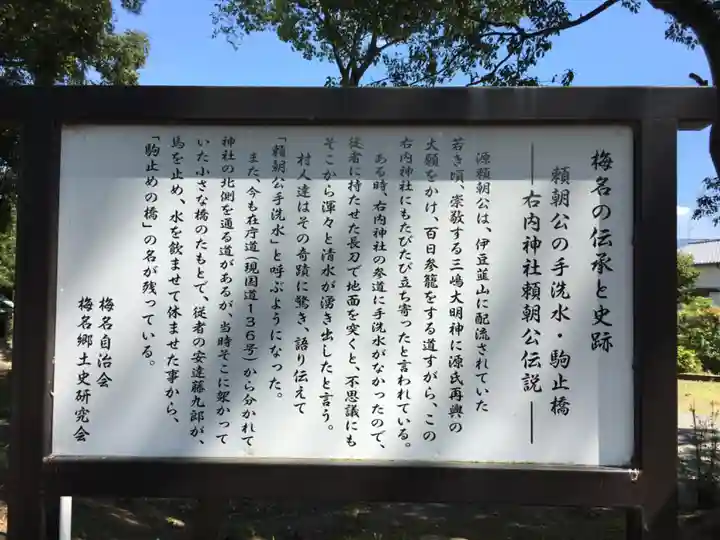 梅名の伝承と史跡
頼朝公の手洗水・駒止橋
――右内神社頼朝公伝説――
源頼朝公は、伊豆韮山に配流されていた
若き頃、崇敬する三嶋大明神に源氏再興の
大願をかけ、百日参籠をする道すがら、この
右内神社にもたびたび立ち寄ったと言われている。
ある時、右内神社の参道に手洗水がなかったので、
従者に持たせた長刀で地面を突くと、不思議にも
そこから渾々と清水が湧き出したと言う。
村人達はその奇蹟に驚き、語り伝えて
「頼朝公手洗水」と呼ぶようになった。
また、今も在庁道(現国道136号)から分かれて
神社の北側を通る道があるが、当時そこに架かって
いた小さな橋のたもとで、従者の安達藤九郎が、
馬を止め、水を飲ませて休ませた事から、
「駒止めの橋」の名が残っている。
梅名自治会
梅名郷土史研究会